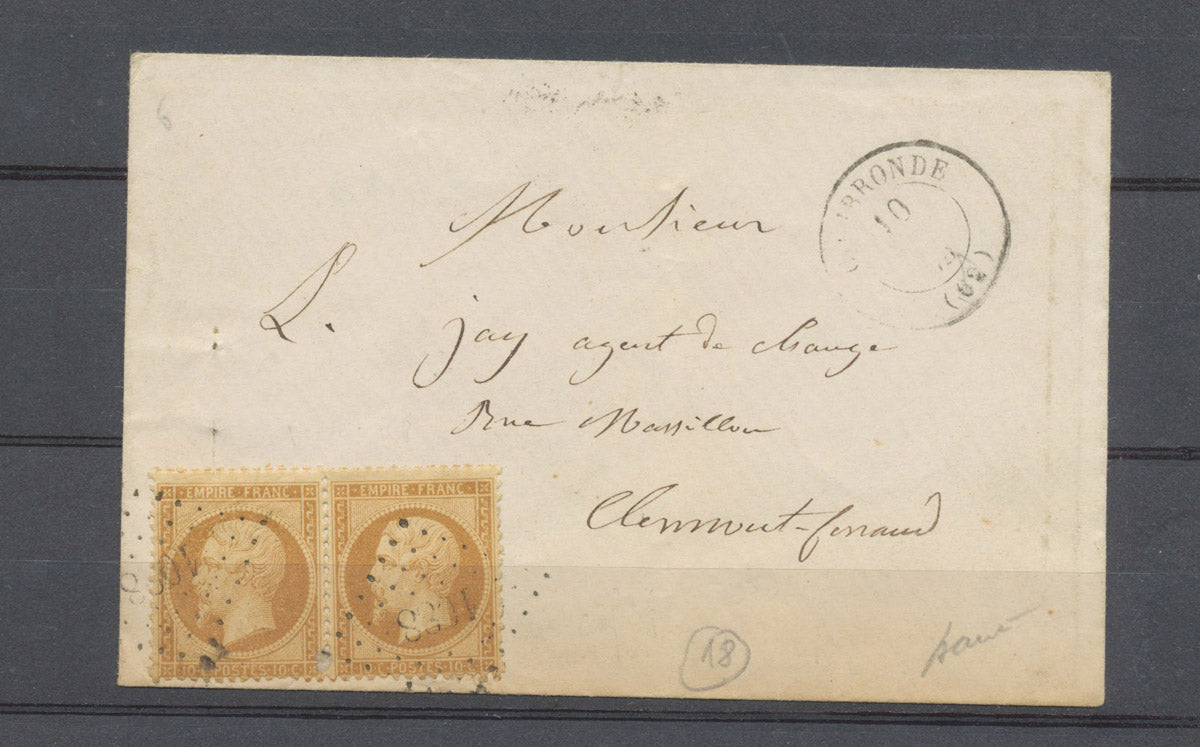 6
BRONDE
10
(62)
Monsieur
L. jay agent de change
Rue Massillon
Clermont-ferrand
EMPIRE FRANC EMPIRE FRANC
10 C POSTES 10 C C POSTES 10 C
18